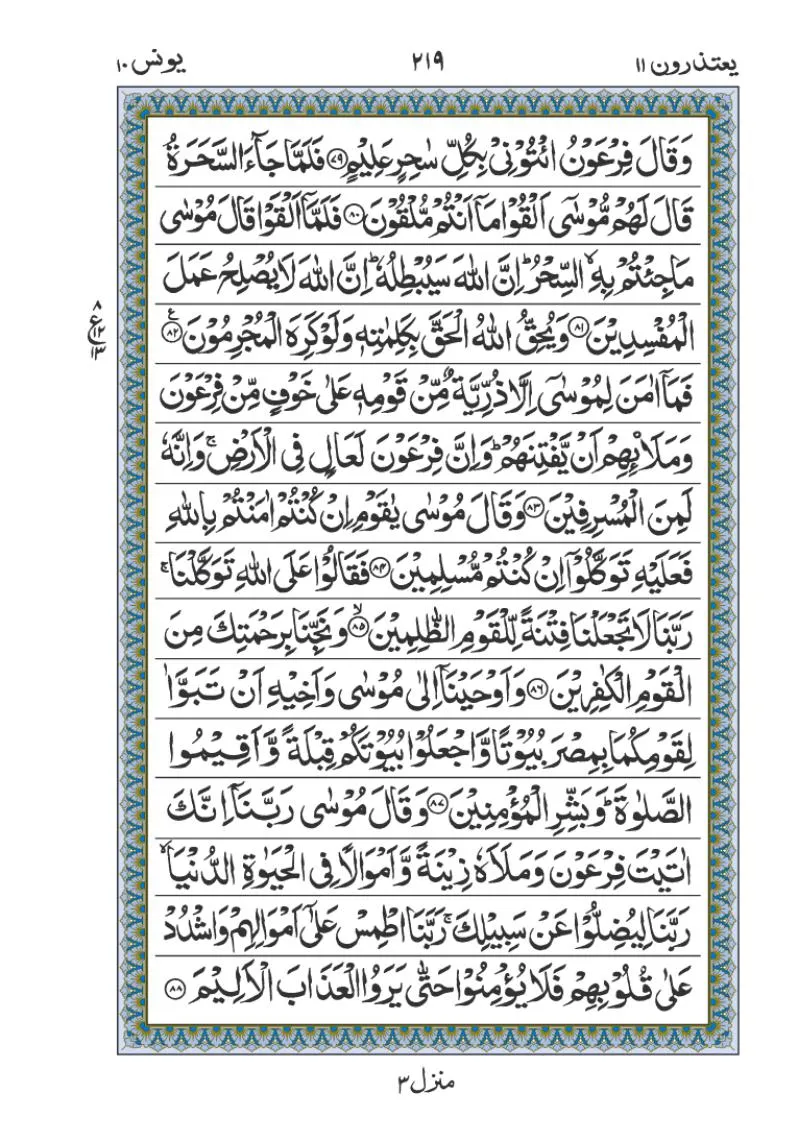 یعتذرون ۱۱
۲۱۹
یونس ۱۰
وَقَالَ فِرْعَوْنُ ائْتُوْنِیْ بِكُلِّ سٰحِرٍ عَلِیْمٍ ۟۷۹ فَلَمَّا جَآءَ السَّحَرَةُ
قَالَ لَهُمْ مُّوْسٰۤی اَلْقُوْا مَاۤ اَنْتُمْ مُّلْقُوْنَ ۟۸۰ فَلَمَّاۤ اَلْقَوْا قَالَ مُوْسٰی
مَا جِئْتُمْ بِهِ ۙ السِّحْرُ ؕ اِنَّ اللّٰهَ سَیُبْطِلُهٗ ؕ اِنَّ اللّٰهَ لَا یُصْلِحُ عَمَلَ
الْمُفْسِدِیْنَ ۟۸۱ وَیُحِقُّ اللّٰهُ الْحَقَّ بِكَلِمٰتِهٖ وَلَوْ كَرِهَ الْمُجْرِمُوْنَ ۟۸۲ ع
۸
ع
۱۲
۱۳
فَمَاۤ اٰمَنَ لِمُوْسٰۤی اِلَّا ذُرِّیَّةٌ مِّنْ قَوْمِهٖ عَلٰی خَوْفٍ مِّنْ فِرْعَوْنَ
وَمَلَا۟ئِهِمْ اَنْ یَّفْتِنَهُمْ ؕ وَاِنَّ فِرْعَوْنَ لَعَالٍ فِی الْاَرْضِ ۚ وَاِنَّهٗ
لَمِنَ الْمُسْرِفِیْنَ ۟۸۳ وَقَالَ مُوْسٰی یٰقَوْمِ اِنْ كُنْتُمْ اٰمَنْتُمْ بِاللّٰهِ
فَعَلَیْهِ تَوَكَّلُوْۤا اِنْ كُنْتُمْ مُّسْلِمِیْنَ ۟۸۴ فَقَالُوْا عَلَی اللّٰهِ تَوَكَّلْنَا ۚ
رَبَّنَا لَا تَجْعَلْنَا فِتْنَةً لِّلْقَوْمِ الظّٰلِمِیْنَ ۟ۙ۸۵ وَنَجِّنَا بِرَحْمَتِكَ مِنَ
الْقَوْمِ الْكٰفِرِیْنَ ۟۸۶ وَاَوْحَیْنَاۤ اِلٰی مُوْسٰی وَاَخِیْهِ اَنْ تَبَوَّاٰ
لِقَوْمِكُمَا بِمِصْرَ بُیُوْتًا وَّاجْعَلُوْا بُیُوْتَكُمْ قِبْلَةً وَّاَقِیْمُوا
الصَّلٰوةَ ؕ وَبَشِّرِ الْمُؤْمِنِیْنَ ۟۸۷ وَقَالَ مُوْسٰی رَبَّنَاۤ اِنَّكَ
اٰتَیْتَ فِرْعَوْنَ وَمَلَاَهٗ زِیْنَةً وَّاَمْوَالًا فِی الْحَیٰوةِ الدُّنْیَا ۙ
رَبَّنَا لِیُضِلُّوْا عَنْ سَبِیْلِكَ ۚ رَبَّنَا اطْمِسْ عَلٰۤی اَمْوَالِهِمْ وَاشْدُدْ
عَلٰی قُلُوْبِهِمْ فَلَا یُؤْمِنُوْا حَتّٰی یَرَوُا الْعَذَابَ الْاَلِیْمَ ۟۸۸
منزل ۳